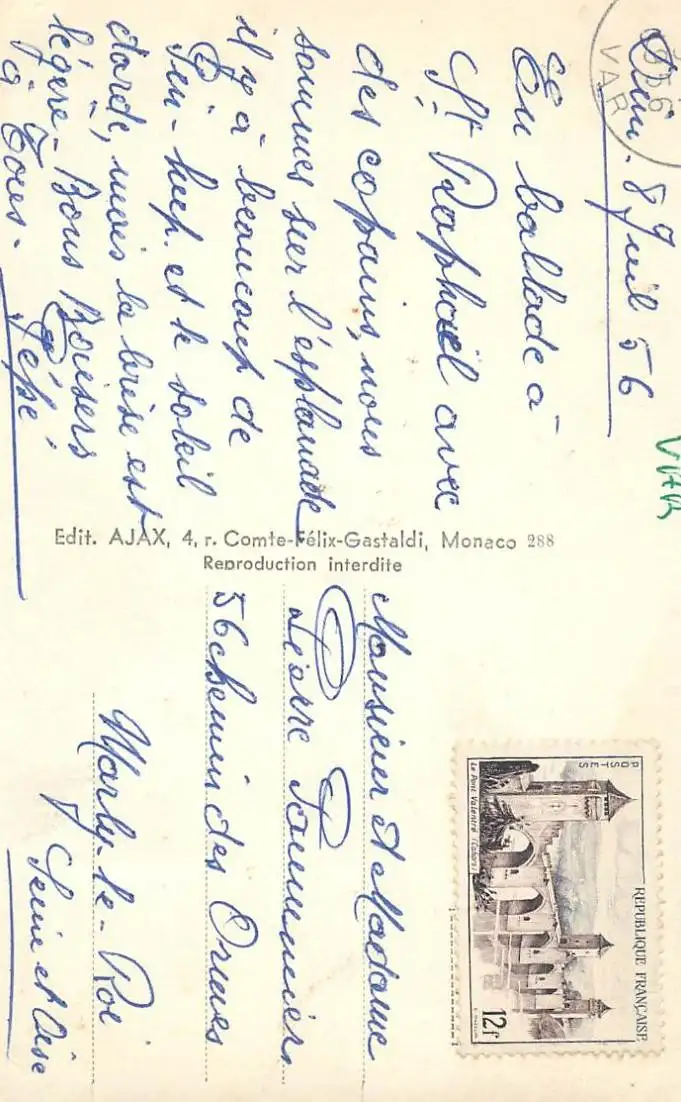 Dim. 8 Juil 56
En ballade à
St Raphaël avec
des copains, nous
sommes sur l'esplanade
il y à beaucoup de
est le soleil
darde, mais la brise est
légère - Bons Baisers
à Tous.
Pépé
VAR
VAR
Edit. AJAX, 4, r. Comte-Félix-Gastaldi, Monaco 288
Reproduction interdite
Monsieur et Madame
Pierre
56 chemin des Ormes
Marly-le-Roi
Seine et Oise
POSTES
REPUBLIQUE FRANÇAISE
Le Pont Valentré (Cahors)
12f